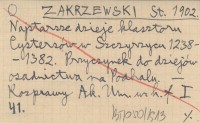 ZAKRZEWSKI St. 1902.
Najstarsze dzieje klasztoru
Cystersów w Szczyrzycu 1238-
-1382. Przyczynek do dziejów
osadnictwa na Podhalu.
Rozprawy Ak. Um. w.h.f. I
41.